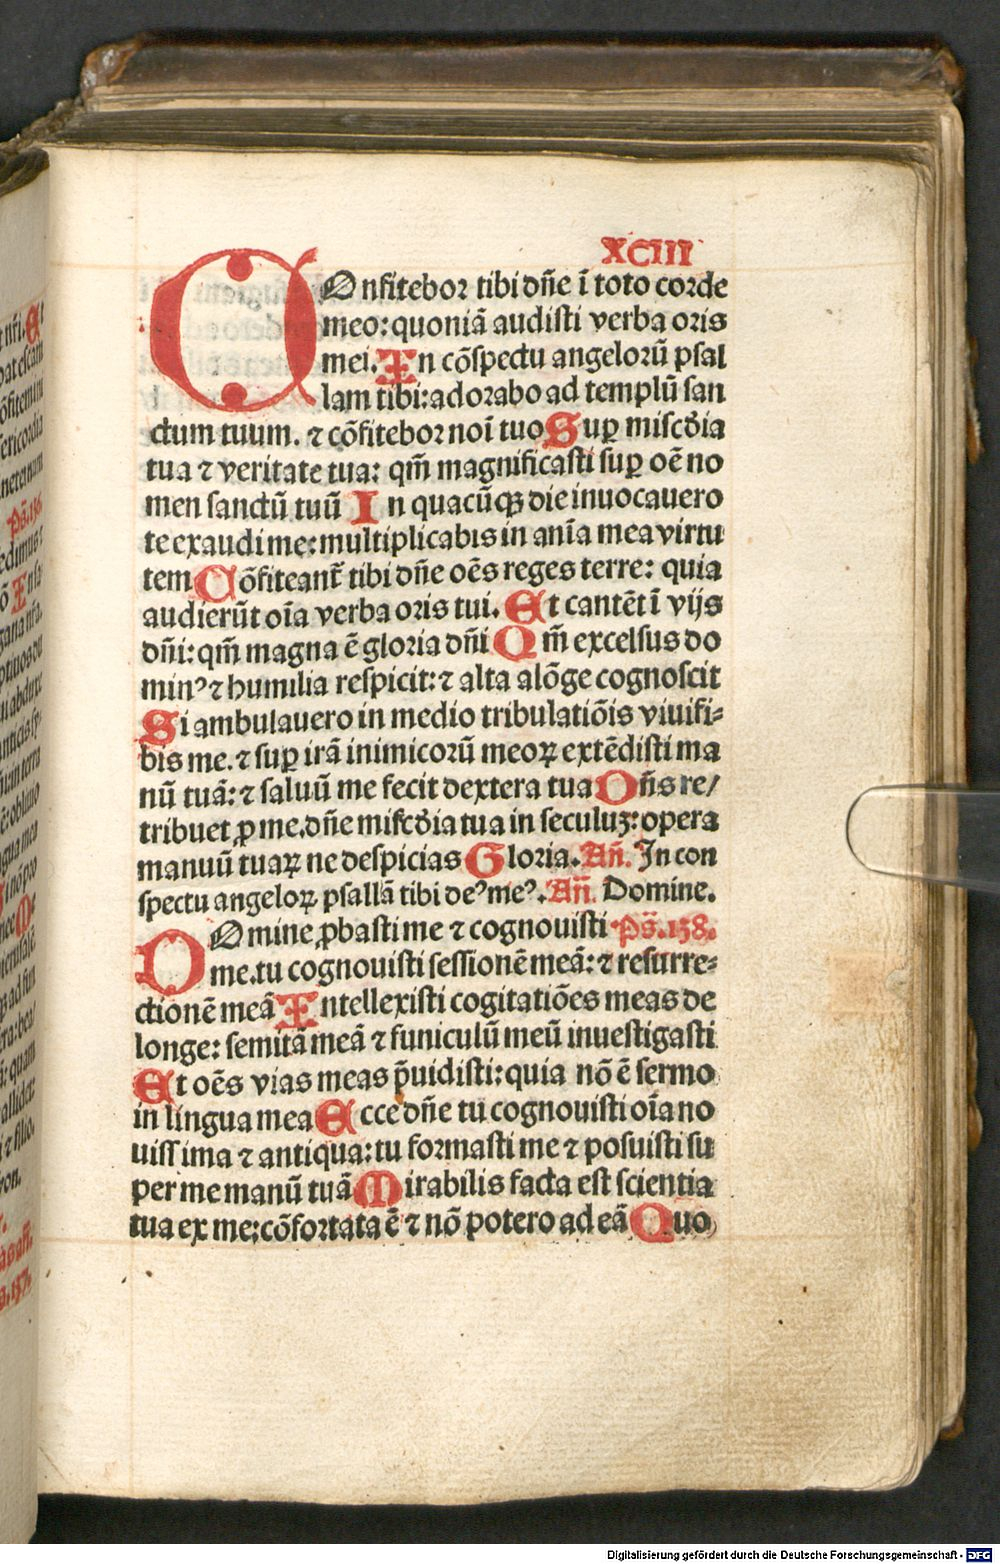 XCIII
COnfitebor tibi dñe ī toto corde
meo: quoniā audisti verba oris
mei. In cōspectu angelorū psal
lam tibi: adorabo ad templū san
ctum tuum. ⁊ cōfitebor noī tuo Suꝑ miscd̄ia
tua ⁊ veritate tua: qm̄ magnificasti suꝑ oē no
men sanctū tuū In quacūqꝫ die inuocauero
te exaudi me: multiplicabis in anīa mea virtu
tem Cōfiteant᷑ tibi dñe oēs reges terre: quia
audierūt oīa verba oris tui. Et cantēt ī vijs
dñi: qm̄ magna ē gloria dñi Qm̄ excelsus do
minꝰ ⁊ humilia respicit: ⁊ alta alōge cognoscit
Si ambulauero in medio tribulatiōis viuifi⸗
bis me. ⁊ suꝑ irā inimicorū meoꝝ extēdisti ma
nū tuā: ⁊ saluū me fecit dextera tua Dñs re/
tribuet ꝓ me. dñe mi&cd̄ia tua in seculuꝫ: opera
manuū tuaꝝ ne despicias Gloria. Añ. In con
spectu angeloꝝ psallā tibi deꝰ meꝰ. Añ. Domine.
DOmine ꝓbasti me ⁊ cognouisti Ps̄. 138.
me. tu cognouisti sessionē meā: ⁊ resurre⸗
ctionē meā Intellexisti cogitatiōes meas de
longe: semitā meā ⁊ funiculū meū inuestigasti
Et oēs vias meas p̄uidisti: quia nō ē sermo
in lingua mea Ecce dñe tu cognouisti oīa no
uissima ⁊ antiqua: tu formasti me ⁊ posuisti su
per me manū tuā Mirabilis facta est scientia
tua ex me: cōfortata ē ⁊ nō potero ad eā Quo
Digitalisierung gefördert durch die Deutsche Forschungsgemeinschaft - DFG